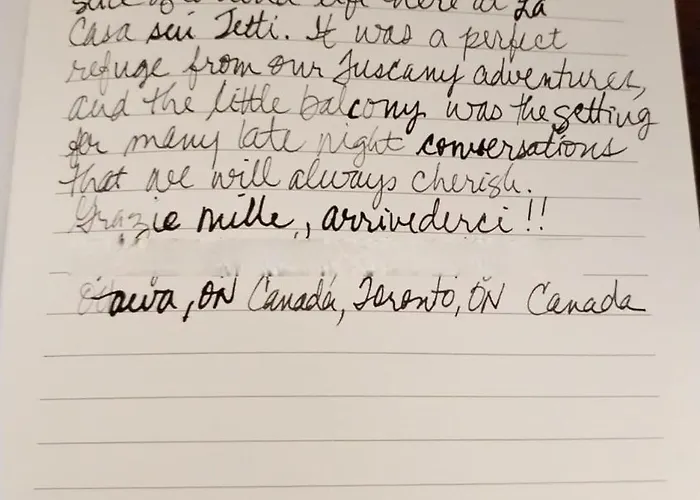 life here at La
Casa sui Tetti. It was a perfect
refuge from our Tuscany adventures,
and the little balcony was the setting
for many late night conversations
that we will always cherish.
Grazie mille, arrivederci!!
Ottawa, ON Canada, Toronto, ON Canada